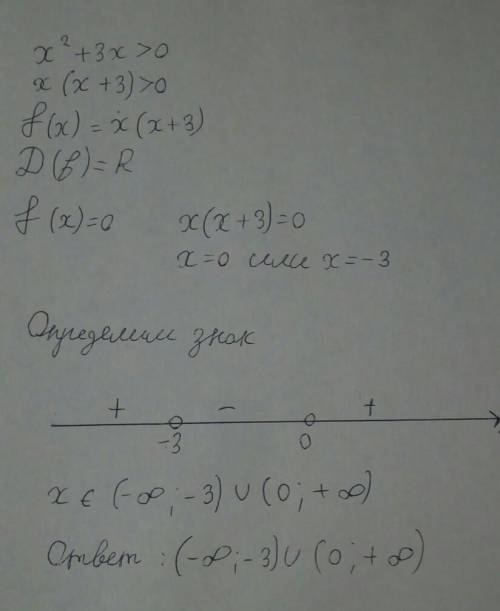 x² + 3x > 0
x (x + 3) > 0
f(x) = x (x + 3)
D(f) = R
f(x) = 0 x(x + 3) = 0
x = 0 или x = -3
Определим знак
+ - +
-3 0
x ∈ (-∞; -3) ∪ (0; +∞)
Ответ : (-∞; -3) ∪ (0; +∞)